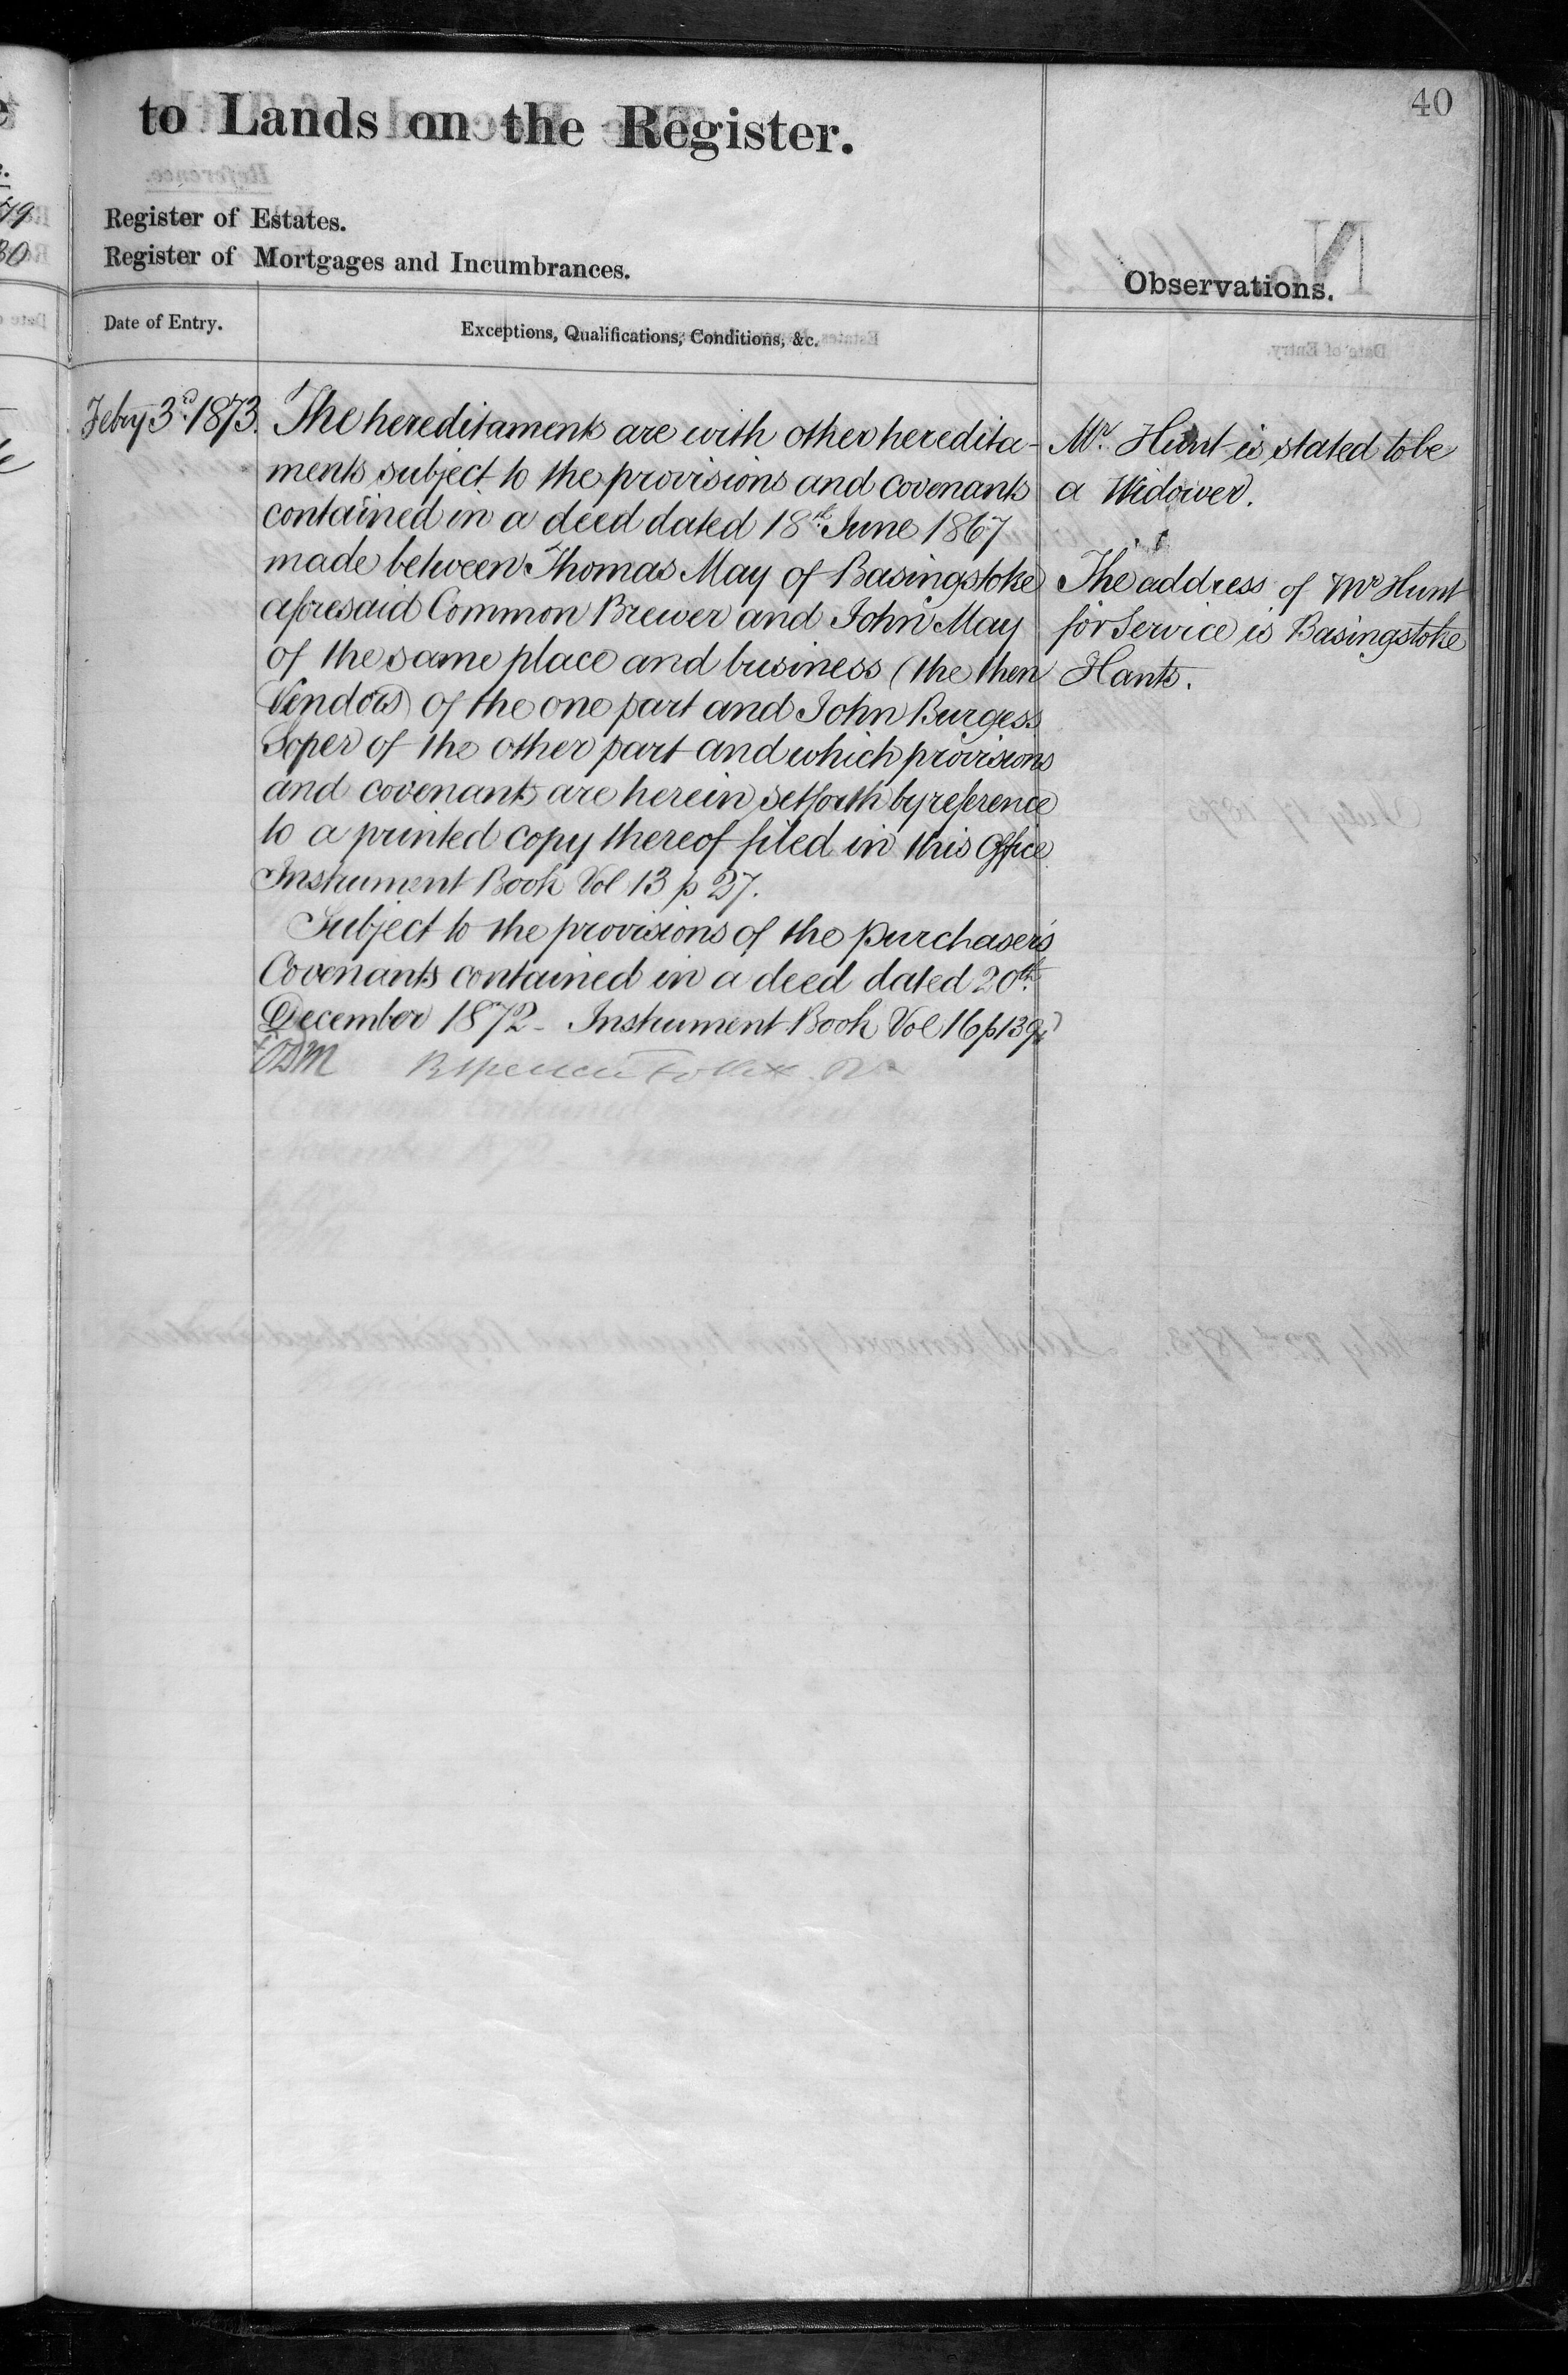 40
to Lands on the Register.
Register of Estates.
Register of Mortgages and Incumbrances.
Observations.
Date of Entry.
Exceptions, Qualifications, Conditions, &c.
Feby 3d. 1873.
The hereditaments are with other heredita-
ments subject to the provisions and covenants
contained in a deed dated 18th. June 1867
made between Thomas May of Basingstoke
aforesaid Common Brewer and John May
of the same place and business (the then
Vendors) of the one part and John Burgess
Soper of the other part and which provisions
and covenants are herein set forth by reference
to a printed copy thereof filed in this Office
Instrument Book Vol 13 p 27.
Subject to the provisions of the Purchaser's
Covenants contained in a deed dated 20th.
December 1872 - Instrument Book Vol 16 p 139
Mr. Hunt is stated to be
a Widower.
The address of Mr Hunt
for Service is Basingstoke
Hants.